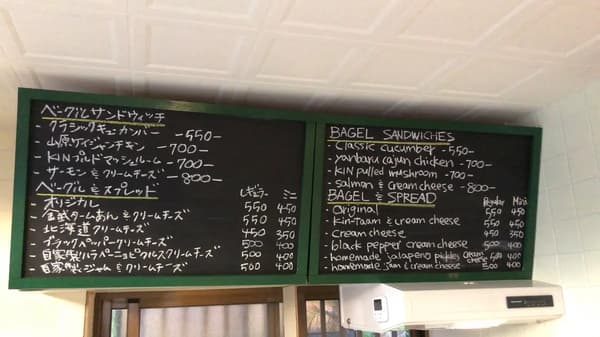 ベーグルサンドウィッチ
- クラシックキューカンバー -550-
- 山原ケイジャンチキン -700-
- KINプルドマッシュルーム -700-
- サーモン&クリームチーズ -800-
ベーグル&スプレッド
レギュラー ミニ
- オリジナル 550 450
- 金武タームあん&クリームチーズ 550 450
- 北海道クリームチーズ 450 350
- ブラックペッパークリームチーズ 500 400
- 自家製ハラペーニョピクルスクリームチーズ 500 400
- 自家製ジャム&クリームチーズ 500 400
BAGEL SANDWICHES
- classic cucumber -550-
- yanbaru cajun chicken -700-
- KIN pulled mushroom -700-
- salmon & cream cheese -800-
BAGEL & SPREAD
Regular Mini
- Original 550 450
- Kin-Taam & cream cheese 550 450
- cream cheese 450 350
- black pepper cream cheese 500 400
- homemade jalapeno pickles cream cheese 500 400
- homemade jam & cream cheese 500 400